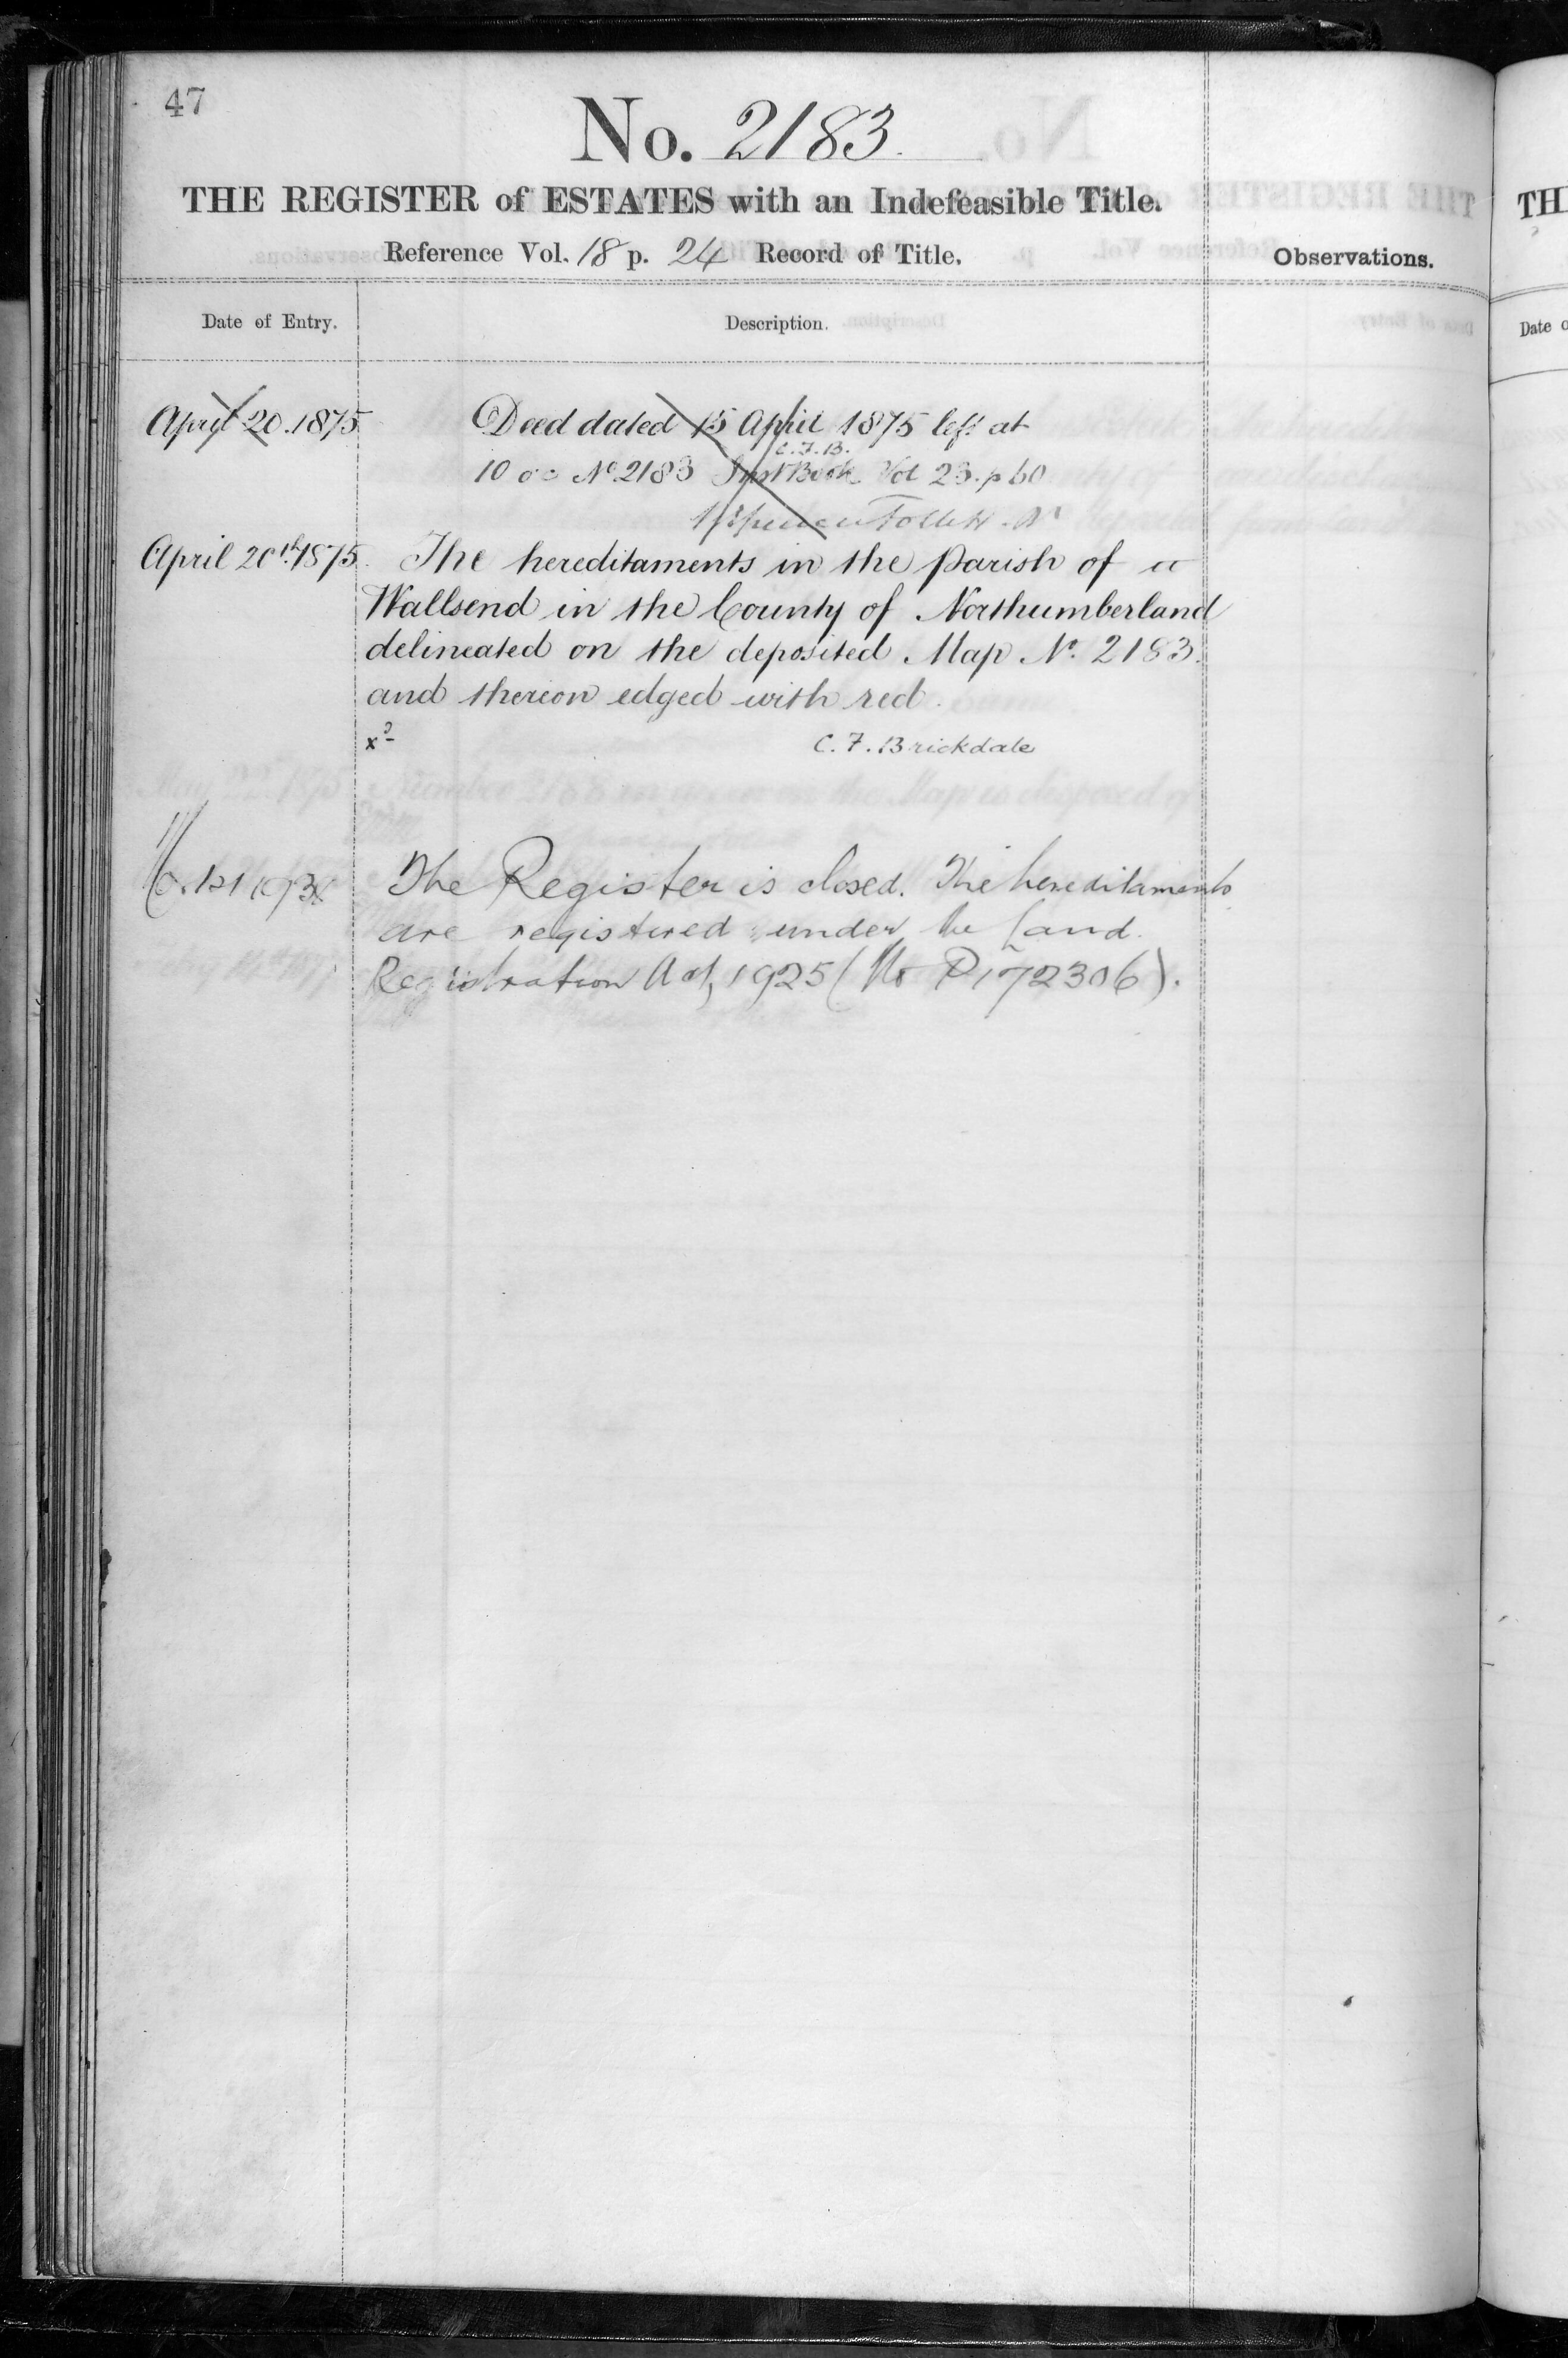 47
No. 2183.
THE REGISTER of ESTATES with an Indefeasible Title.
Reference Vol. 18 p. 24 Record of Title.
Observations.
Date of Entry.
Description.
April 20. 1875
Deed dated 15 April 1875 left at
C.F.B.
10 o c No. 2183 Inst Book Vol 23. p 60
Follett
April 20th 1875.
The hereditaments in the parish of
Wallsend in the County of Northumberland
delineated on the deposited Map No. 2183.
and thereon edged with red.
C. F. Brickdale
The Register is closed. The hereditaments
are registered under the Land
Registration Act, 1925 (No P172306).
TH
Date o